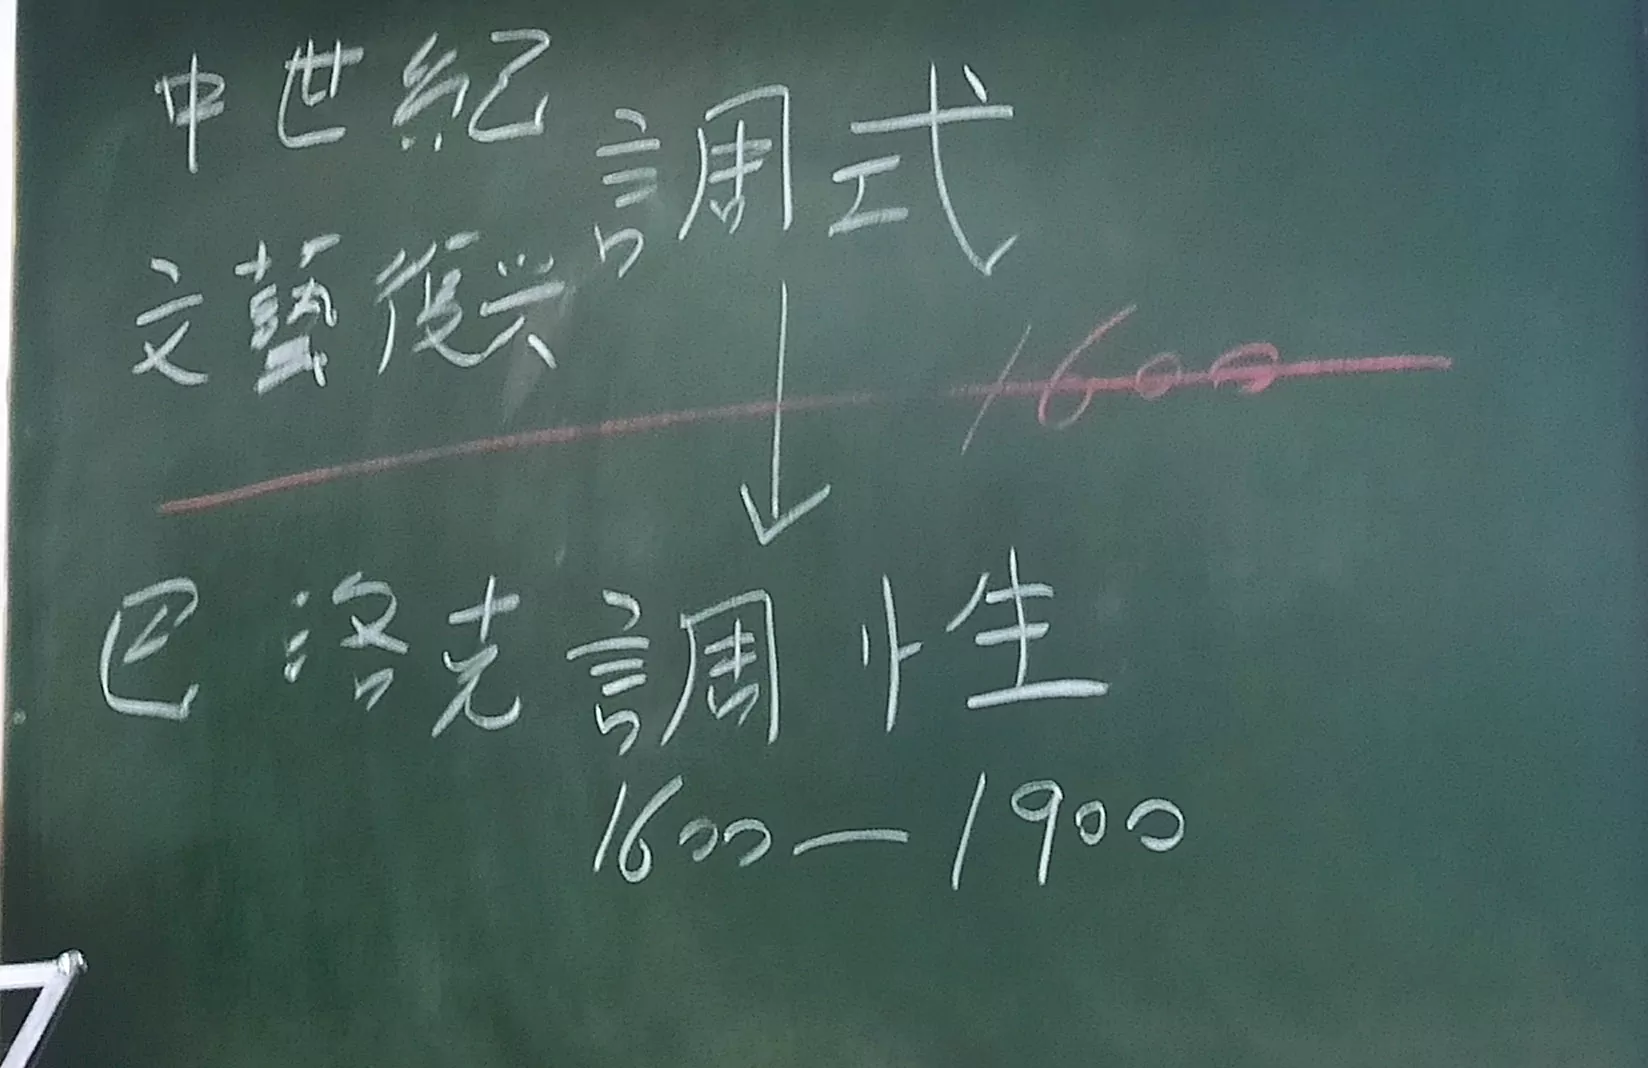 中世紀
調式
文藝復兴
1600
巴洛克調性
1600—1900